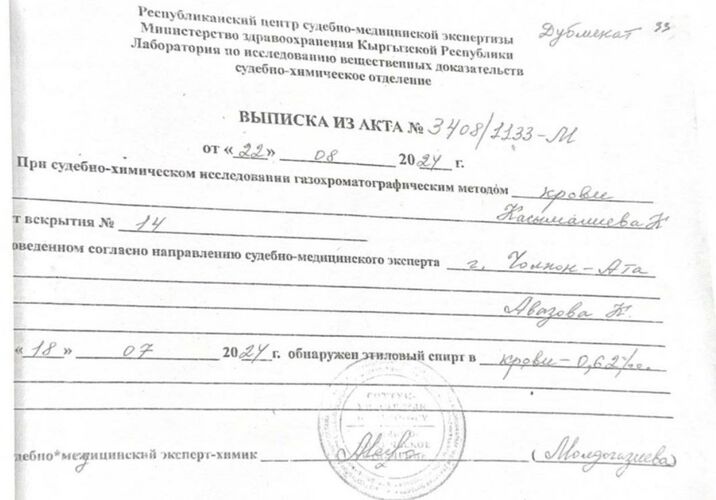 Республиканский центр судебно-медицинской экспертизы
Министерство здравоохранения Кыргызской Республики
Лаборатория по исследованию вещественных доказательств
судебно-химическое отделение
Дубликат 33
ВЫПИСКА ИЗ АКТА № 3408/1133-М
от «22» 08 2024 г.
При судебно-химическом исследовании газохроматографическим методом крови
Касымалиева К
т вскрытия № 14
оведенном согласно направлению судебно-медицинского эксперта г. Чолпон-Ата
Авазова К.
«18» 07 2024 г. обнаружен этиловый спирт в крови - 0,62
дебно*медицинский эксперт-химик (Молдогазиева)